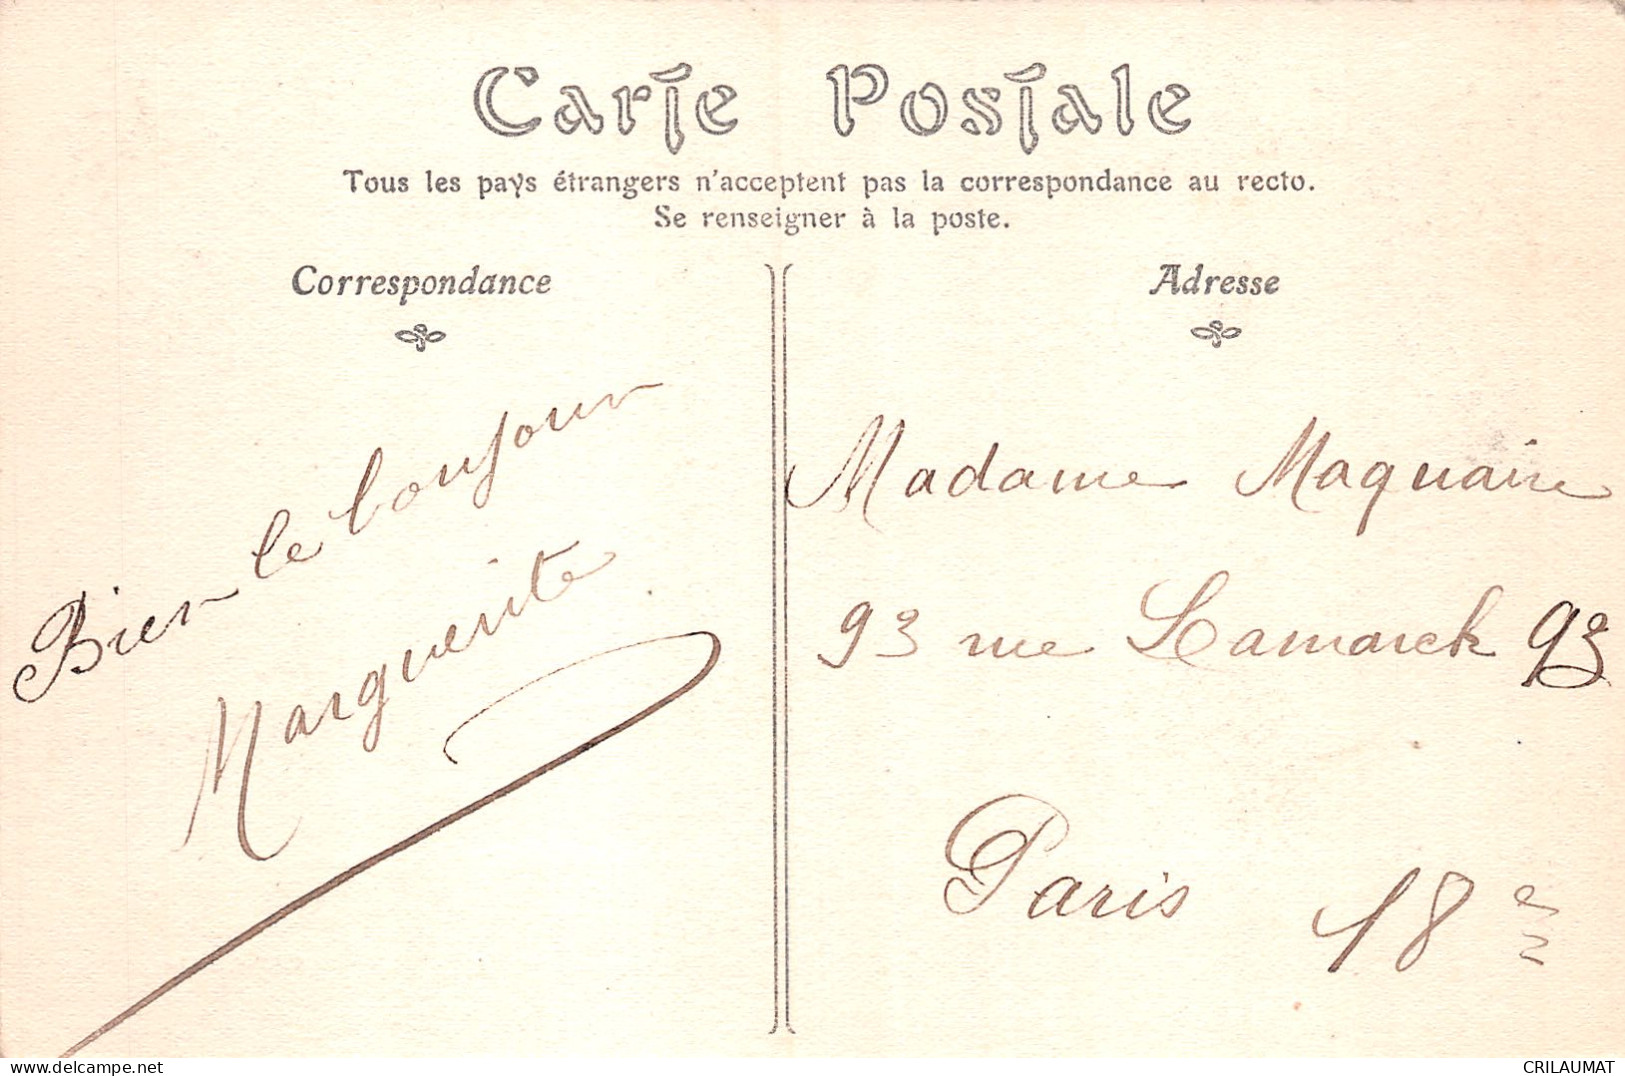 Carte Postale
Tous les pays étrangers n'acceptent pas la correspondance au recto.
Se renseigner à la poste.
Correspondance
Bien le bonjour
Marguerite
Adresse
Madame Maquaire
93 rue Lamarck 93
Paris 18e
CRILAUMAT